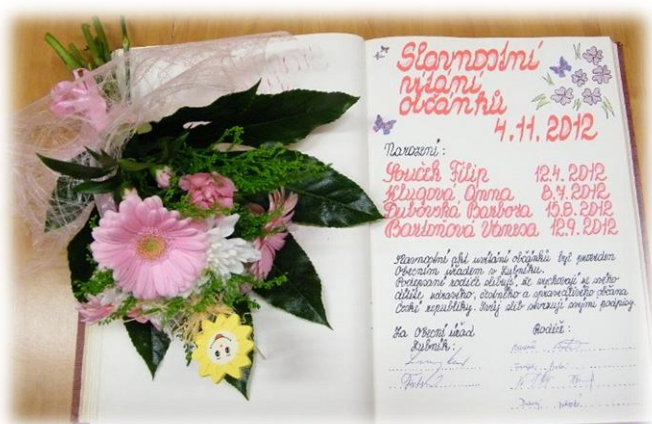 Slavnostní
vítání
občánků
4.11.2012
Narození:
Souček Filip 12.4.2012
Klugová Anna 8.7.2012
Dubovská Barbora 15.8.2012
Bartoňová Vanesa 12.9.2012
Slavnostní akt uvítání občánků byl proveden
Obecním úřadem v
Podepsaní rodiče slibují, že vychovají ze svého
dítěte zdravého, čestného a spravedlivého občana
České republiky. Svůj slib stvrzují svými podpisy.
Za Obecní úřad Rodiče: